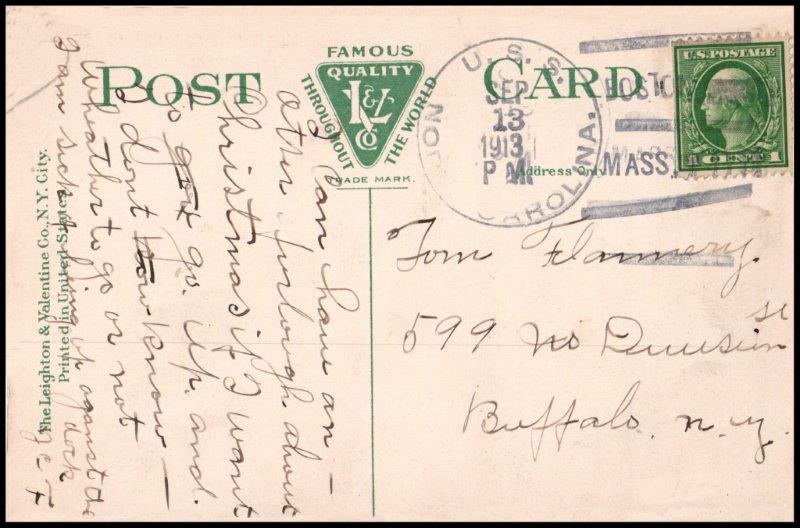 POST CARD
FAMOUS
QUALITY
THROUGHOUT THE WORLD
L & V
Co
TRADE MARK.
Address Only
U. S. S. NORTH CAROLINA.
SEP
13
1913
P M
BOSTON
MASS.
U.S. POSTAGE
1 CENT 1
Tom Flannery.
599 No Division St
Buffalo. n.y.
I can have an-
other furlough about
Christmas if I want
to go. up. and.
I dont know
Wheather to go or not
I am sick being up against the
dock
J C F
The Leighton & Valentine Co., N.Y. City.
Printed in United States.